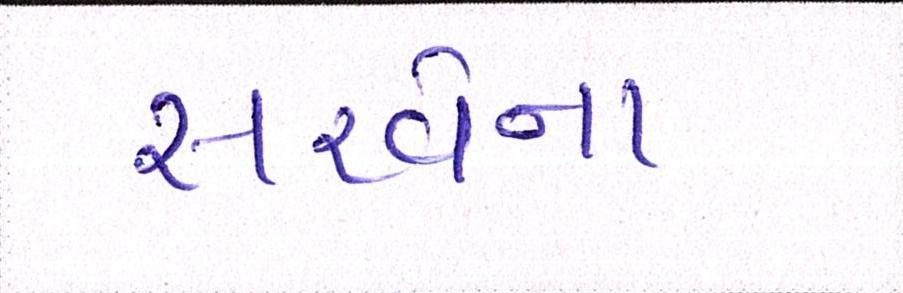 સરવેના